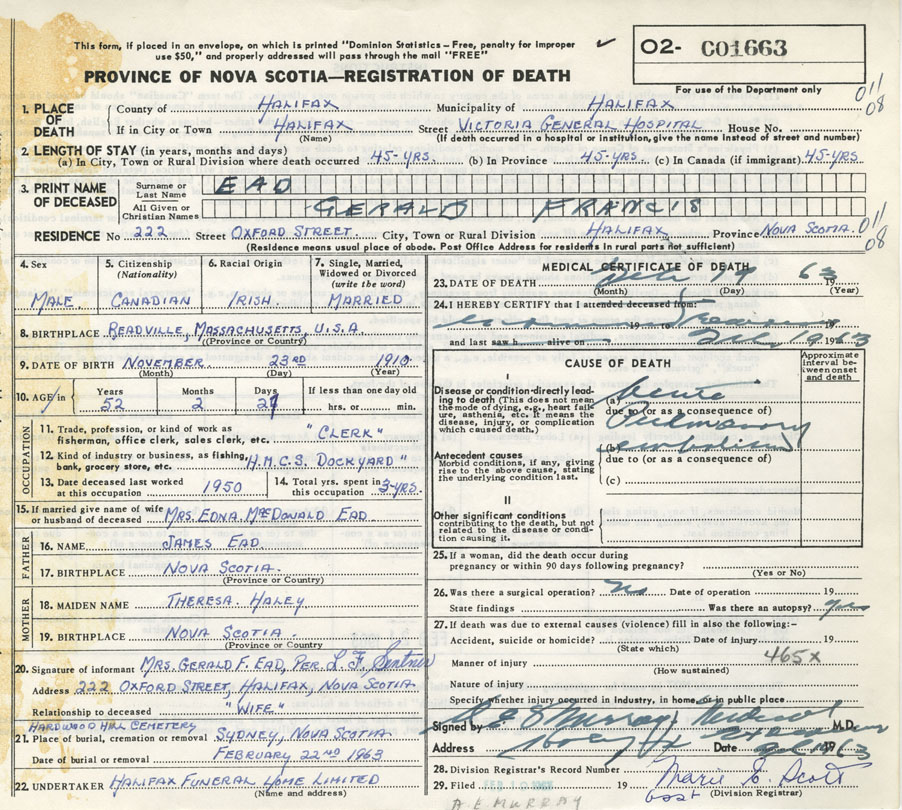 This form, if placed in an envelope, on which is printed "Dominion Statistics – Free, penalty for improper
use $50," and properly addressed will pass through the mail "FREE"
O2- C01663
PROVINCE OF NOVA SCOTIA—REGISTRATION OF DEATH
For use of the Department only
011
08
1. PLACE OF DEATH
County of HALIFAX Municipality of HALIFAX
If in City or Town HALIFAX Street VICTORIA GENERAL HOSPITAL House No.
(Name) (If death occurred in a hospital or institution, give the name instead of street and number)
2. LENGTH OF STAY (in years, months and days)
(a) In City, Town or Rural Division where death occurred 45-YRS. (b) In Province 45-YRS. (c) In Canada (if immigrant) 45-YRS.
3. PRINT NAME OF DECEASED
Surname or Last Name EAD
All Given or Christian Names GERALD FRANCIS
RESIDENCE No 222 Street OXFORD STREET City, Town or Rural Division HALIFAX Province NOVA SCOTIA 011
08
(Residence means usual place of abode. Post Office Address for residents in rural parts not sufficient)
4. Sex
MALE
5. Citizenship
(Nationality)
CANADIAN
6. Racial Origin
IRISH
7. Single, Married,
Widowed or Divorced
(write the word)
MARRIED
8. BIRTHPLACE READVILLE, MASSACHUSETTS, U.S.A.
(Province or Country)
9. DATE OF BIRTH NOVEMBER 23RD 1910
(Month) (Day) (Year)
10. AGE in
Years Months Days If less than one day old
52 2 27 hrs. or min.
OCCUPATION
11. Trade, profession, or kind of work as
fisherman, office clerk, sales clerk, etc. "CLERK"
12. Kind of industry or business, as fishing,
bank, grocery store, etc. "H.M.C.S. DOCKYARD"
13. Date deceased last worked
at this occupation 1950
14. Total yrs. spent in
this occupation 3-YRS.
15. If married give name of wife
or husband of deceased MRS. EDNA MacDONALD EAD
FATHER
16. NAME JAMES EAD
17. BIRTHPLACE NOVA SCOTIA
(Province or Country)
MOTHER
18. MAIDEN NAME THERESA HALEY
19. BIRTHPLACE NOVA SCOTIA
(Province or Country)
20. Signature of informant MRS. GERALD F. EAD, PER. L.F.
Address 222 OXFORD STREET, HALIFAX, NOVA SCOTIA
Relationship to deceased "WIFE"
HARDWOOD HILL CEMETERY
21. Place of burial, cremation or removal SYDNEY, NOVA SCOTIA
Date of burial or removal FEBRUARY 22ND 1963
22. UNDERTAKER HALIFAX FUNERAL HOME LIMITED
(Name and address)
MEDICAL CERTIFICATE OF DEATH
23. DATE OF DEATH Feb 19 1963
(Month) (Day) (Year)
24. I HEREBY CERTIFY that I attended deceased from:
19 to 19
and last saw h alive on Feb 19 1963
CAUSE OF DEATH
Approximate interval between onset and death
I
Disease or condition directly leading to death (This does not mean
the mode of dying, e.g., heart failure, asthenia, etc. It means the
disease, injury, or complication
which caused death.)
(a) Acute
due to (or as a consequence of)
Pulmonary
(b) embolism
Antecedent causes
Morbid conditions, if any, giving
rise to the above cause, stating
the underlying condition last.
due to (or as a consequence of)
(c)
II
Other significant conditions
contributing to the death, but not
related to the disease or condition causing it.
25. If a woman, did the death occur during
pregnancy or within 90 days following pregnancy?
(Yes or No)
26. Was there a surgical operation? No Date of operation 19
State findings Was there an autopsy? yes
27. If death was due to external causes (violence) fill in also the following:–
Accident, suicide or homicide? Date of injury 19
(State which)
465X
Manner of injury
(How sustained)
Nature of injury
Specify whether injury occurred in industry, in home, or in public place
Signed by Murray M.D.
Address Date 1963
28. Division Registrar's Record Number
29. Filed 19 Marie E. Scott
(Division Registrar)
A.E. MURRAY